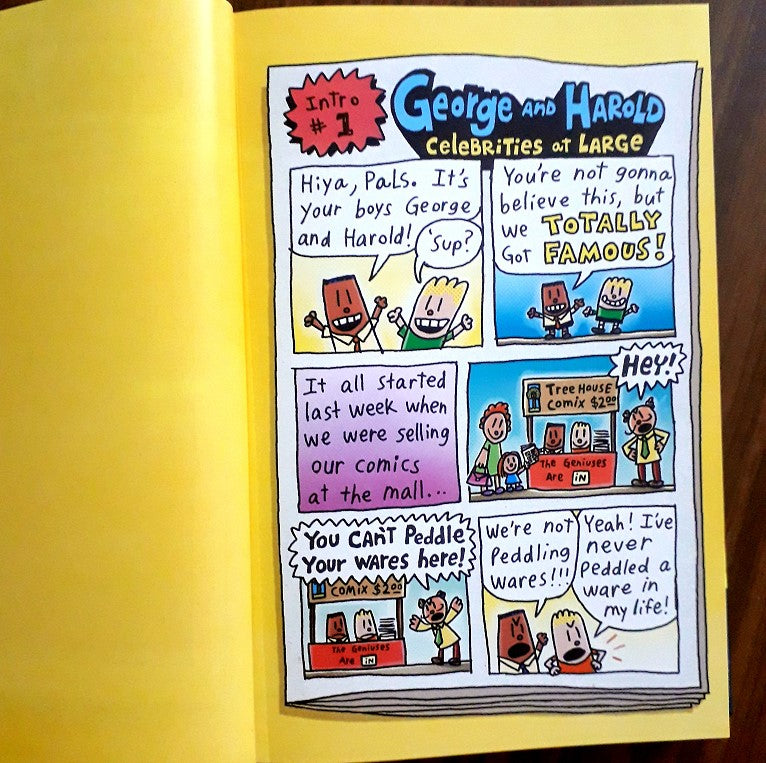 Intro
# 1
George AND HAROLD
CeleBRiTies at LARGe
Hiya, Pals. It's
your boys George
and Harold!
'Sup?
You're not gonna
believe this, but
we TOTALLY
Got FAMOUS!
It all started
last week when
we were selling
our comics
at the mall...
Hey!
Tree House
Comix $2.00
The Geniuses
Are iN
You CAN'T Peddle
Your WARes here!
Comix $2.00
The Geniuses
Are iN
We're not
Peddling
WAREs!!!
Yeah! I've
never
Peddled a
ware in
my life!